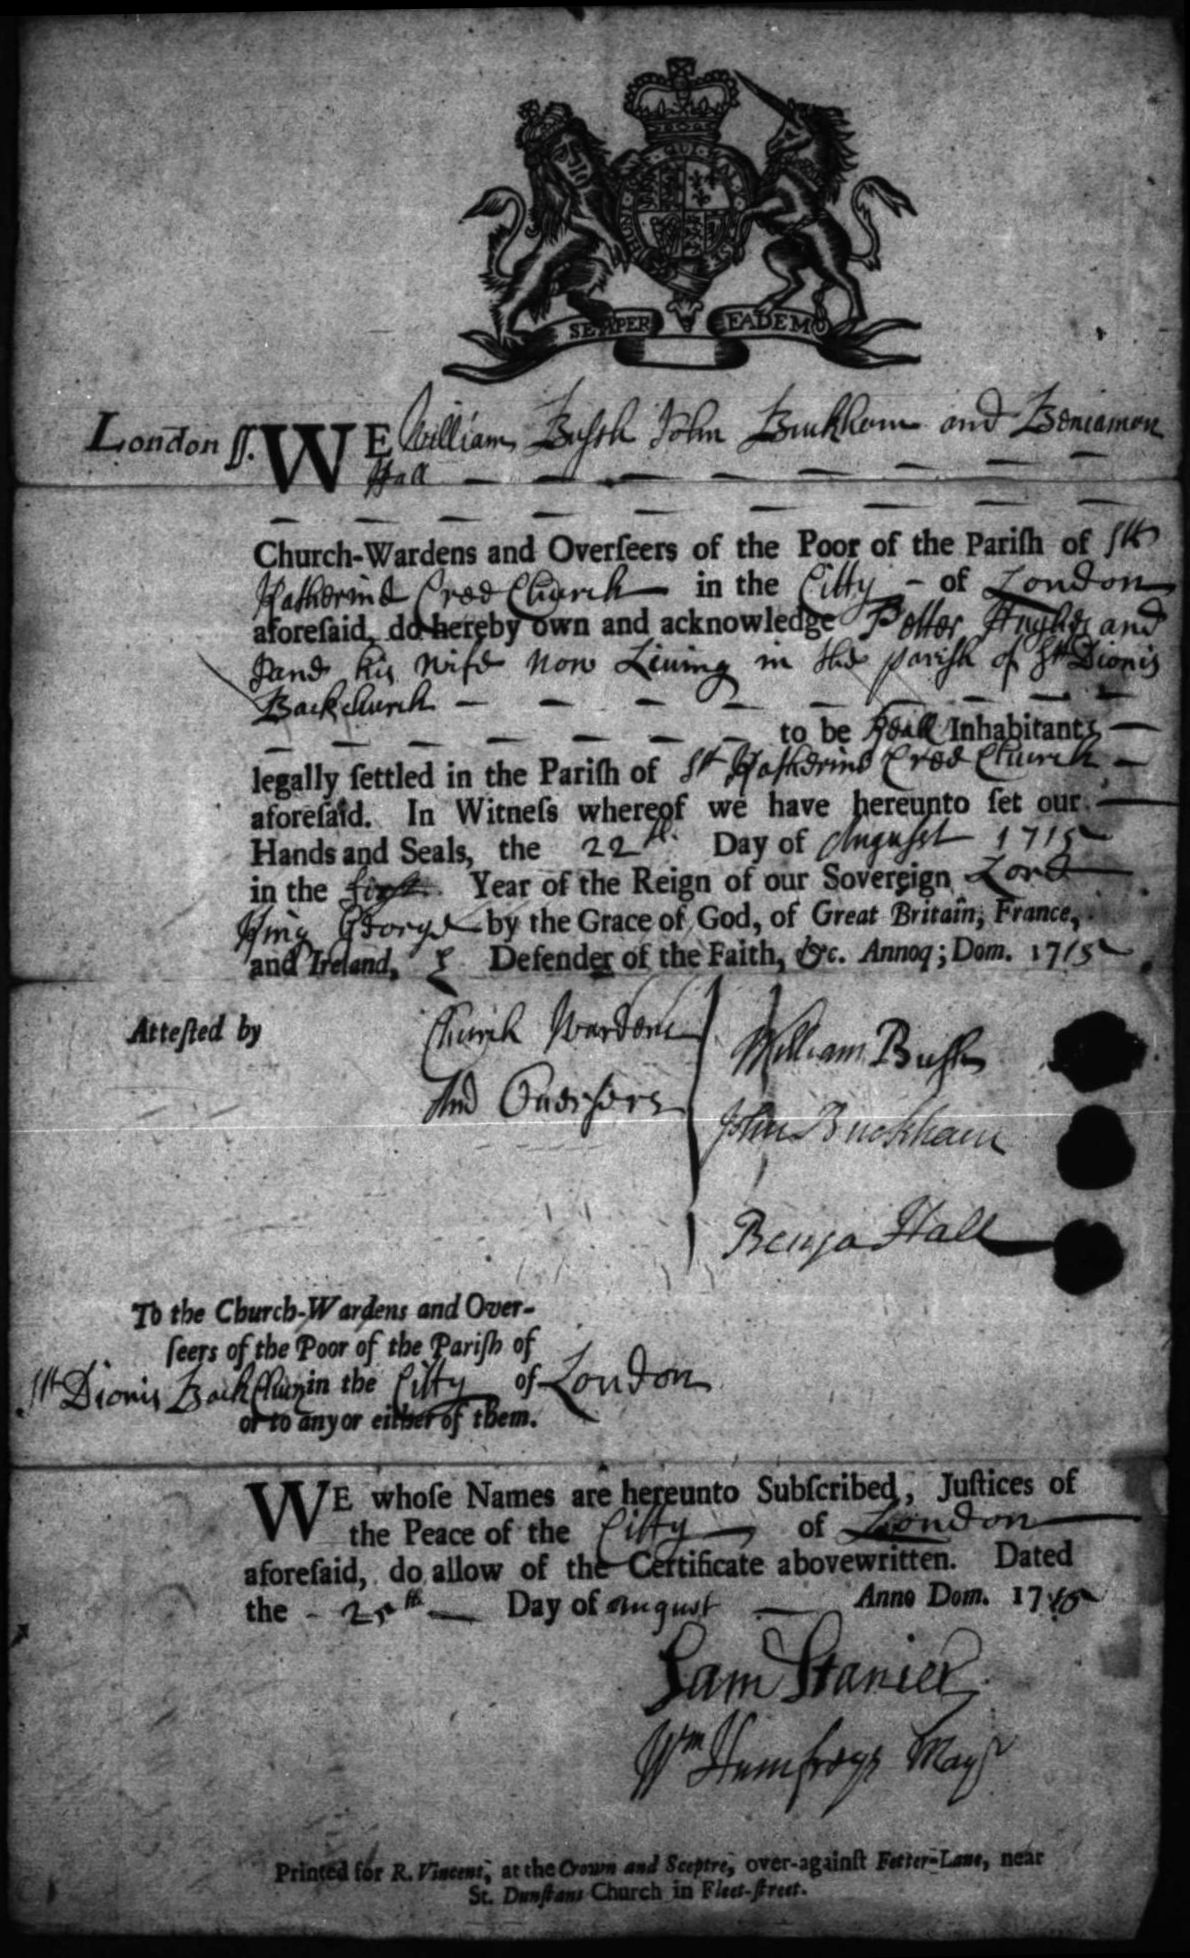 SEMPER EADEM
London ſſ. WE William Bussh John Buckham and Beniamen
Hall
Church-Wardens and Overſeers of the Poor of the Pariſh of Stt
Katherine Cree Church in the Citty of London
aforeſaid, do hereby own and acknowledge Petter Hughes and
Jane his wife now Liuing in the parish of Stt Dionis
Backchurch
to be Leall Inhabitants
legally ſettled in the Pariſh of St Katherine Cree Church
aforeſaid. In Witneſs whereof we have hereunto ſet our
Hands and Seals, the 22th Day of Augusst 1715
in the first Year of the Reign of our Sovereign Lord
King George by the Grace of God, of Great Britain, France,
and Ireland, Defender of the Faith, &c. Annoq; Dom. 1715
Atteſted by Church Wardens William Bussh
And Ouerseers John Buckham
Benja Hall
To the Church-Wardens and Over-
ſeers of the Poor of the Pariſh of
Stt Dionis Back Church in the Citty of London
or to any or either of them.
WE whoſe Names are hereunto Subſcribed, Juſtices of
the Peace of the Citty of London
aforeſaid, do allow of the Certificate abovewritten. Dated
the Day of August Anno Dom. 1715
Sam Stanier
Wm Humfreys Mayr
Printed for R. Vincent, at the Crown and Sceptre, over-againſt Fetter-Lane, near
St. Dunſtans Church in Fleet-ſtreet.